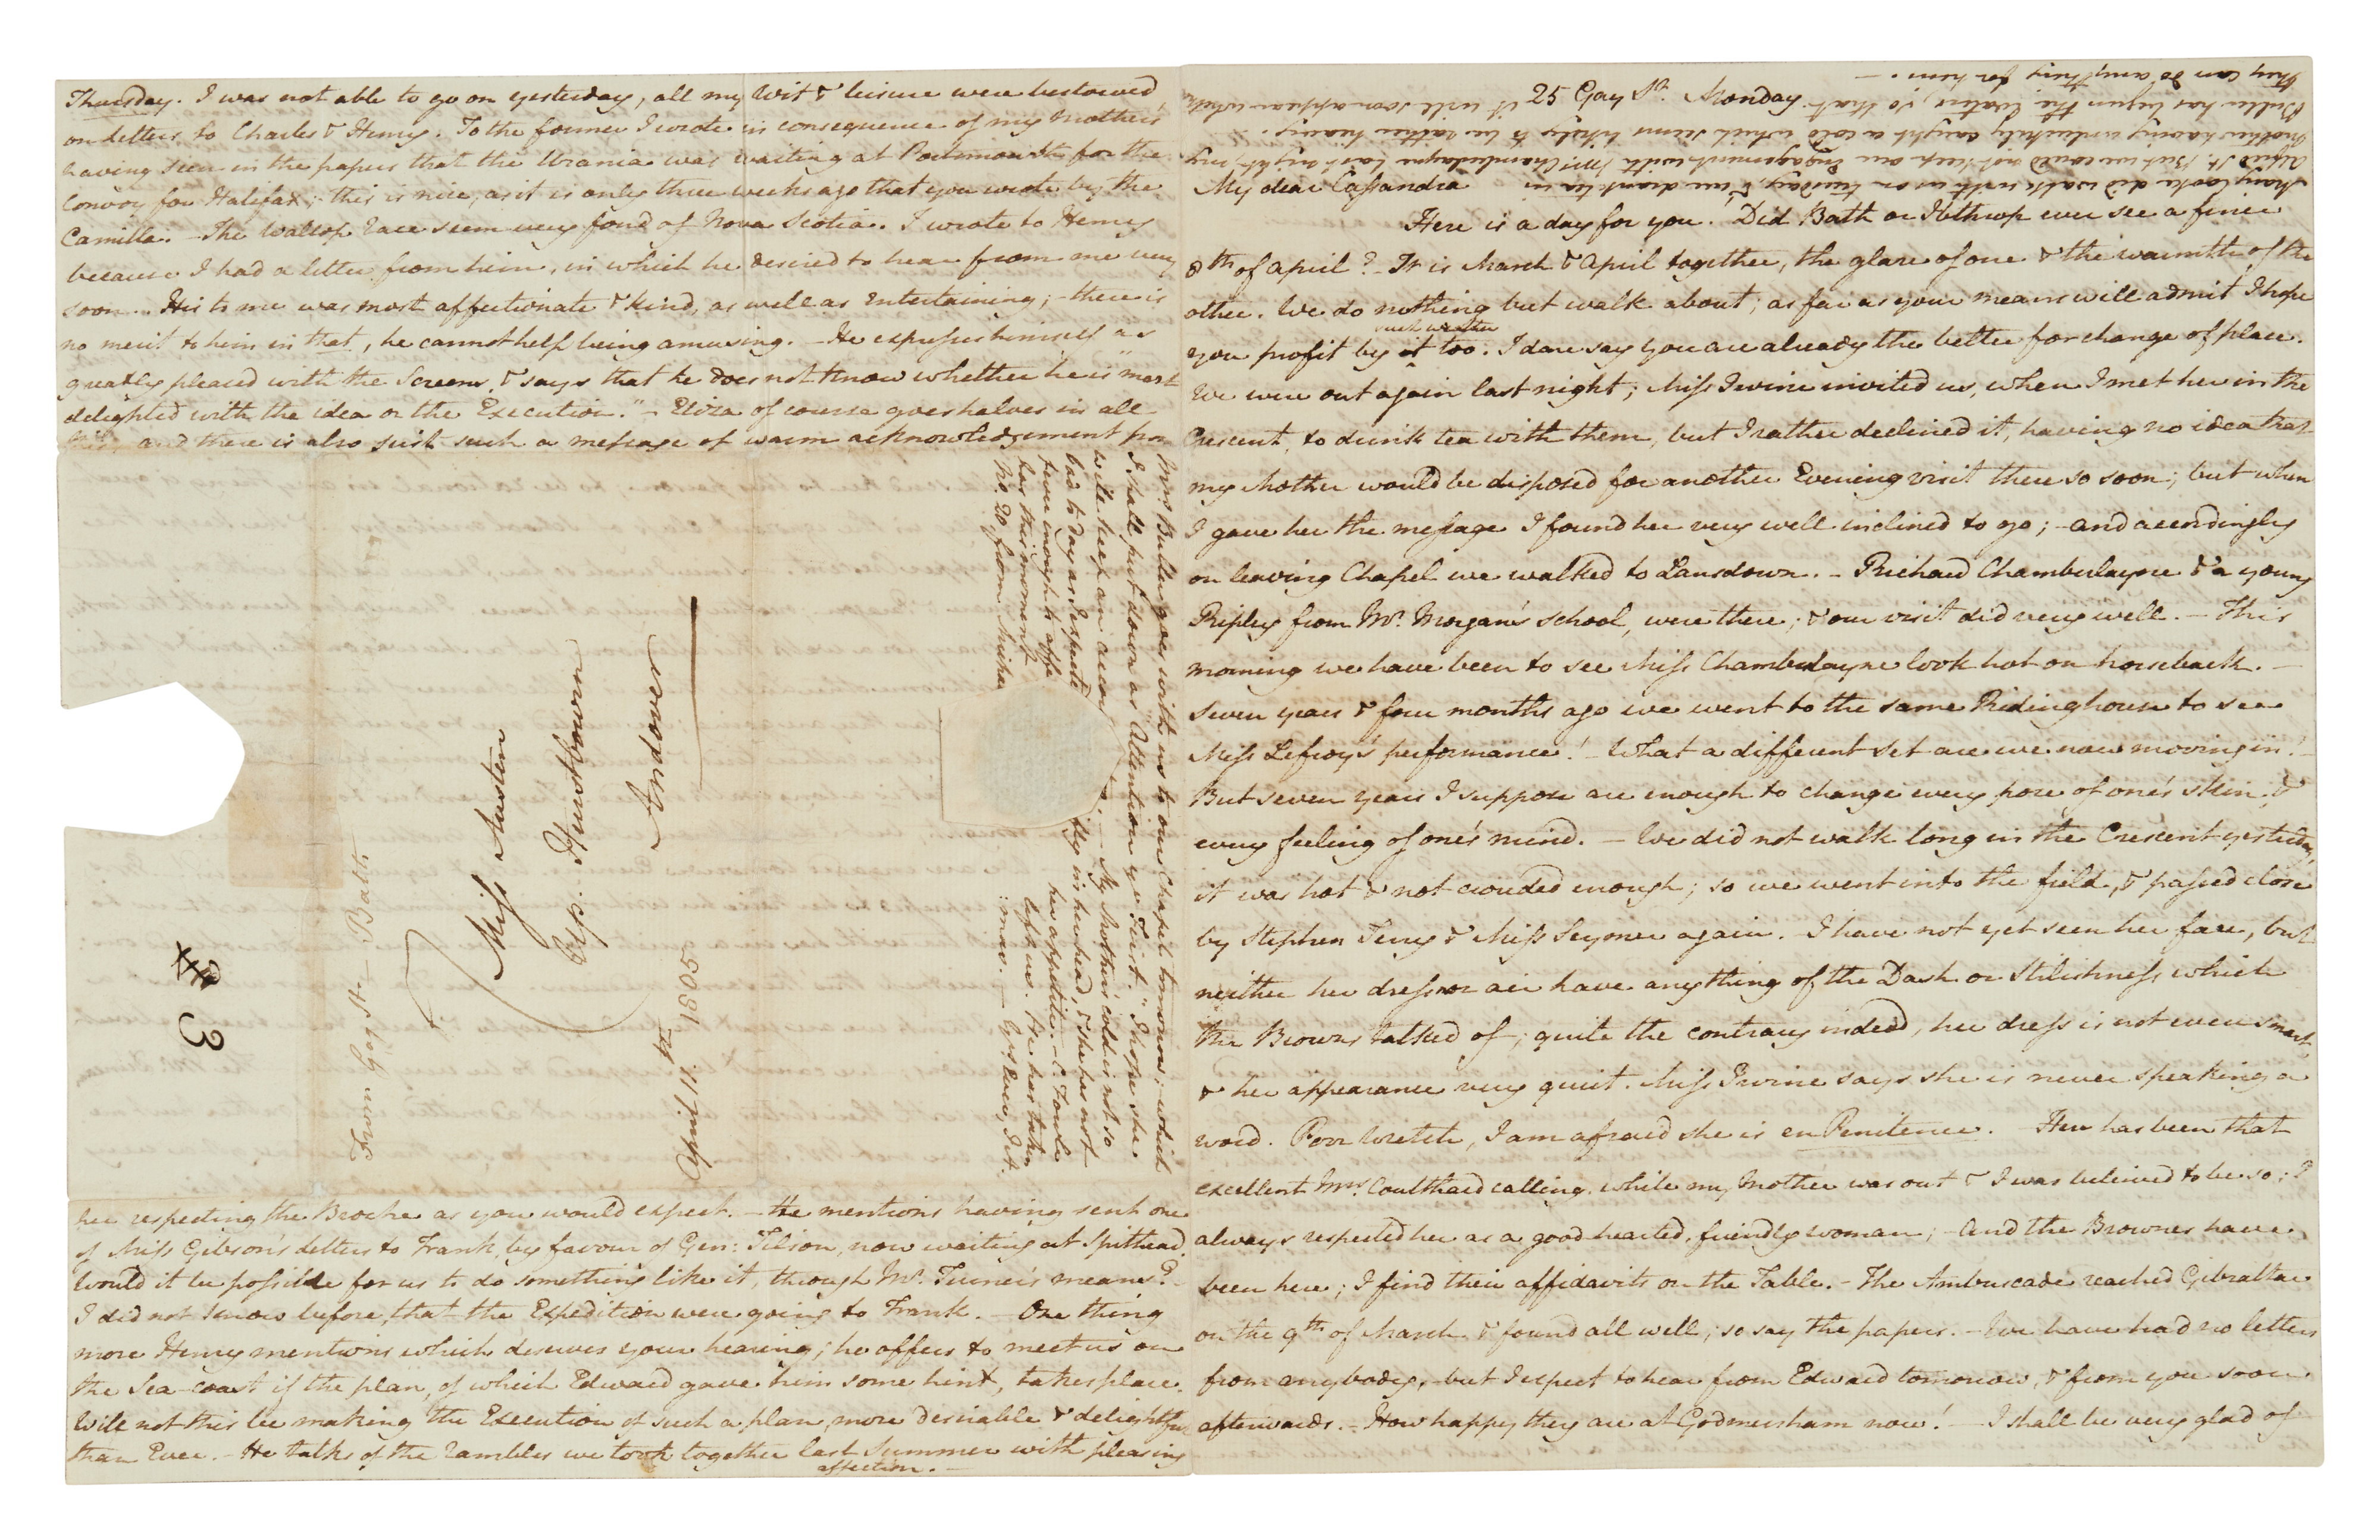 25 Gay St. Monday.
My dear Cassandra
Here is a day for you. Did Bath or Ibthrop ever see a finer
8th of April? - It is March & April together, the glare of one & the warmth of the
other. We do nothing but walk about; as far as your means will admit I hope
such weather
you profit by it too. I dare say you are already the better for change of place.
We were out again last night; Miss Irvine invited us, when I met her in the
Crescent, to drink tea with them, but I rather declined it, having no idea that
my Mother would be disposed for another Evening visit there so soon; but when
I gave her the message I found her very well inclined to go; - and accordingly
on leaving Chapel we walked to Lansdown. - Richard Chamberlayne & a young
Ripley from Mr. Morgan's school, were there; & our visit did very well. - This
morning we have been to see Miss Chamberlayne look hot on horseback. -
Seven years & four months ago we went to the same Ridinghouse to see
Miss Lefroy's performance! - What a different set are we now moving in! -
But seven years I suppose are enough to change every pore of one's skin, &
every feeling of one's mind. - We did not walk long in the Crescent yesterday,
it was hot & not crouded enough; so we went into the field, & passed close
by Stephen Terry & Miss Seymer again. - I have not yet seen her face, but
neither her dress nor air have anything of the Dash or Stilishness which
the Browns talked of; quite the contrary indeed, her dress is not even smart,
& her appearance very quiet. Miss Irvine says she is never speaking a
word. Poor Wretch, I am afraid she is en Penitence. - Here has been that
excellent Mrs. Coulthard calling, while my Mother was out & I was beleived to be so; I
always respected her as a good-hearted, friendly woman; - And the Brownes have
been here; I find their affidavits on the Table. - The Ambuscade reached Gibraltar
on the 9th of March & found all well; so say the papers. - We have had no letters
from anybody, - but I expect to hear from Edward tomorrow, & from you soon
afterwards. - How happy they are at Godmersham now! - I shall be very glad of
Thursday. I was not able to go on yesterday, all my Wit & leisure were bestowed
on letters to Charles & Henry. To the former I wrote in consequence of my Mother's
having seen in the papers that the Urania was waiting at Portsmouth for the
Convoy for Halifax; - this is nice, as it is only three weeks ago that you wrote by the
Camilla. - The Wallop race seem very fond of Nova Scotia. I wrote to Henry
because I had a letter from him, in which he desired to hear from me very
soon. - His to me was most affectionate & kind, as well as entertaining; - there is
no merit to him in that, he cannot help being amusing. - He expresses himself as
greatly pleased with the Screen, & says that he does not know whether he is "most
delighted with the idea or the Execution." - Eliza of course goes halves in all
this, and there is also just such a message of warm acknowledgement from
her respecting the Broche as you would expect. - He mentions having sent one
of Miss Gibson's letters to Frank, by favour of Gen: Tilson, now waiting at Spithead.
Would it be possible for us to do something like it, through Mr. Turner's means? -
I did not know before, that the Expedition were going to Frank. - One thing
more Henry mentions which deserves your hearing; he offers to meet us on
the Sea-coast if the plan, of which Edward gave him some hint, takes place.
Will not this be making the Execution of such a plan, more desirable & delightful
than Ever. - He talks of the rambles we took together last Summer with pleasing
affection. -
Mrs. Buller goes with us to our Chapel tomorrow; - which
I shall put down as "Attention ye First." I hope she
will keep an account too. - My Mother's cold is not so
bad to day as I expected. It is chiefly in her head, & she has not
fever enough to affect her appetite. - C. Fowle
has this moment left us. He has taken
No. 20 from Michaelmas. - Yrs Ever, J A.
Miss Austen
Up. Hurstbourne
Andover
April 11th 1805
From Gay St - Bath
43
Mary Cooke did walk with us on Tuesday, & we drank tea in
Alfred St. But we could not keep our Engagement with Mrs. Chamberlayne last night, my
Mother having unluckily caught a cold which seems likely to be rather heavy.
Buller has begun the Waters, so that it will soon appear whether
they can do anything for him. -